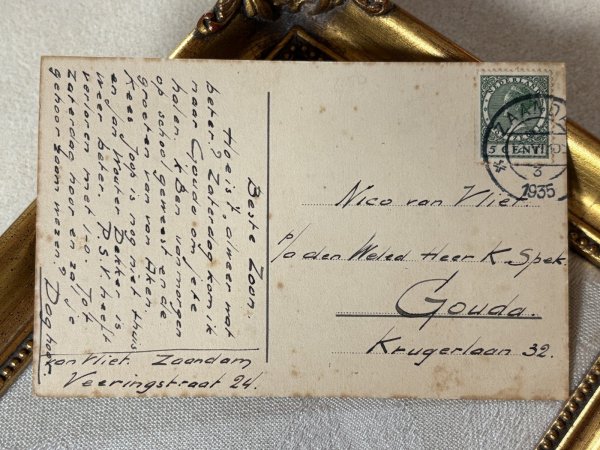 Beste Zoon.
Hoe is 't al weer wat
beter? Zaterdag kom ik
naar Gouda om je te
halen. k Ben vanmorgen
op school geweest en de
groeten van van Aken.
Kees Joop is nog niet thuis
en Wouter Dekker is
weer beter. heeft
verloren met 1-0. Tot
zaterdag hoor zal je
gehoorzaam wezen?
Dag hoor.
van Vliet. Zaandam
Veeringstraat 24.
NEDERLAND
5 CENT
ZAANDA
3
1935
Nico van Vliet.
p/a den Weled Heer K. Spek.
Gouda.
Krugerlaan 32.